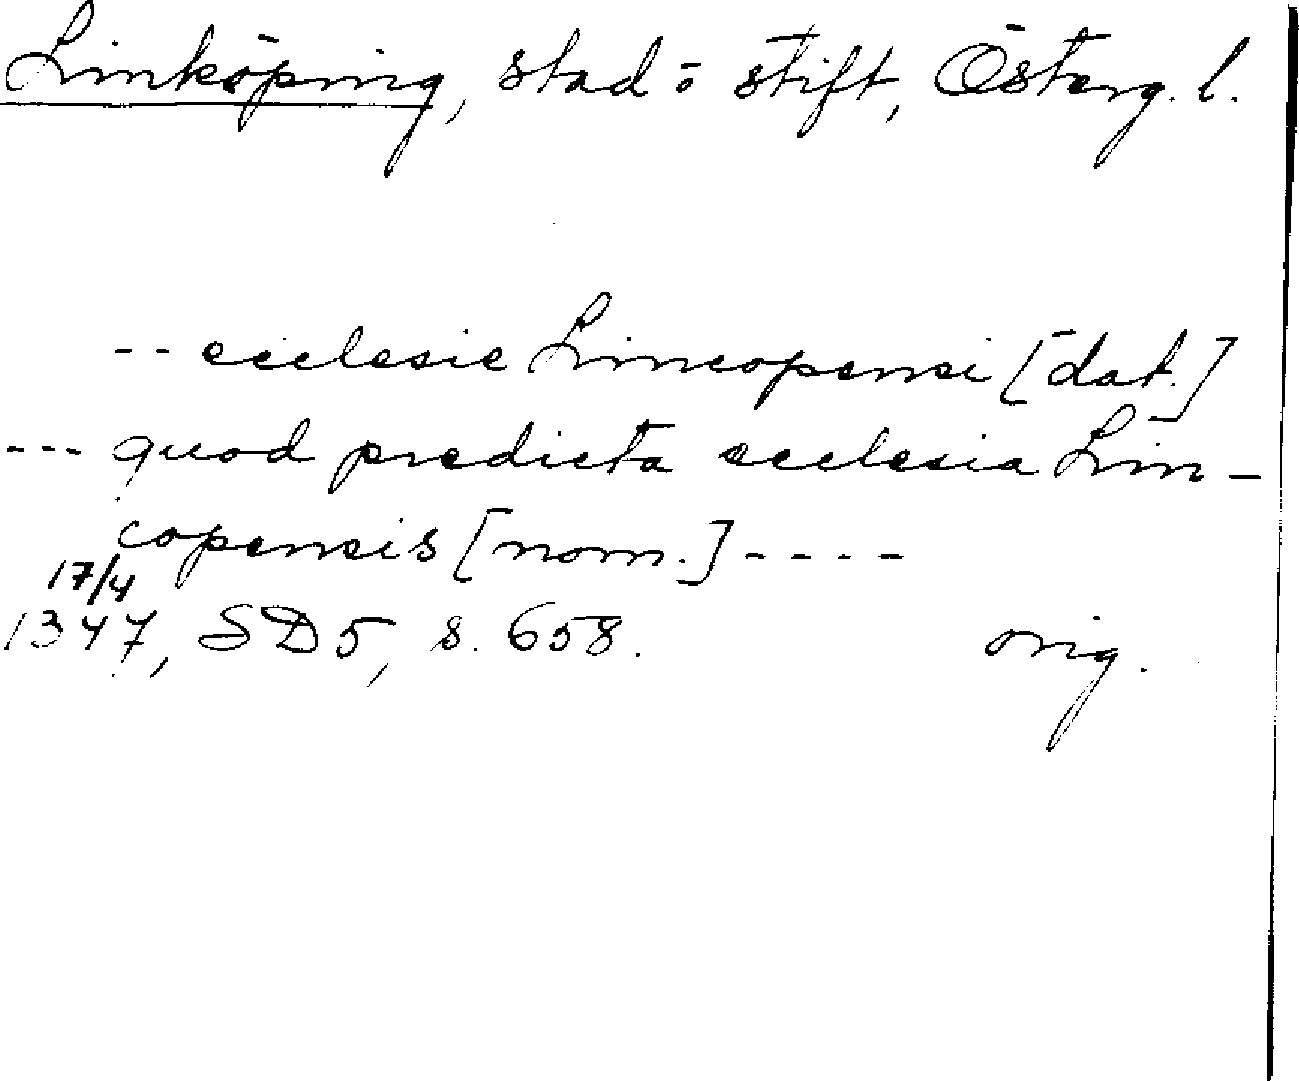 Linköping, stad o stift, Österg. l.
-- ecclesie Lincopensi [dat.]
--- quod predicta ecclesia Lin-
copensis [nom.] ----
17/4
1347, SD5, s. 658. orig.